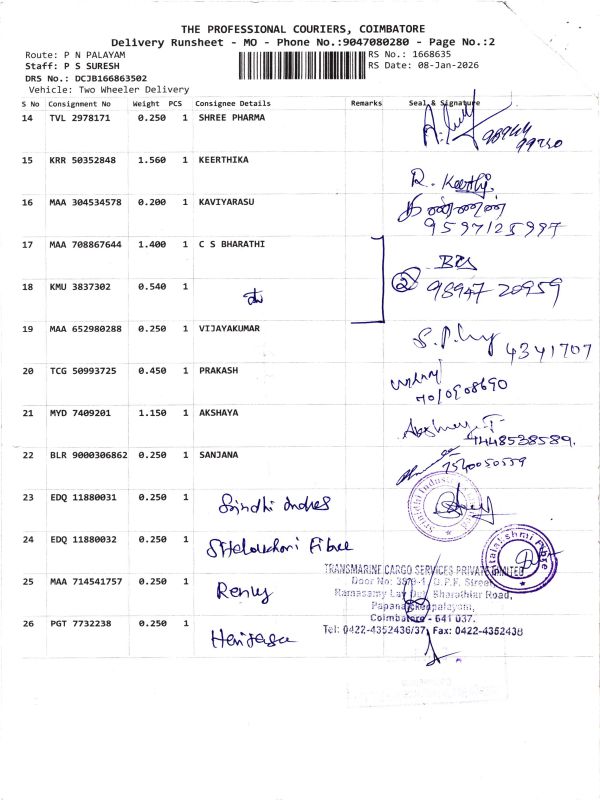 THE PROFESSIONAL COURIERS, COIMBATORE
Delivery Runsheet - MO - Phone No.:9047080280 - Page No.:2
Route: P N PALAYAM
RS No.: 1668635
Staff: P S SURESH
RS Date: 08-Jan-2026
DRS No.: DCJB166863502
Vehicle: Two Wheeler Delivery
S No Consignment No Weight PCS Consignee Details Remarks Seal & Signature
14 TVL 2978171 0.250 1 SHREE PHARMA
15 KRR 50352848 1.560 1 KEERTHIKA
R. Keerthi
16 MAA 304534578 0.200 1 KAVIYARASU
9597125997
17 MAA 708867644 1.400 1 C S BHARATHI
18 KMU 3837302 0.540 1
② 98947 20959
19 MAA 652980288 0.250 1 VIJAYAKUMAR
4341707
20 TCG 50993725 0.450 1 PRAKASH
7010908690
21 MYD 7409201 1.150 1 AKSHAYA
22 BLR 9000306862 0.250 1 SANJANA
23 EDQ 11880031 0.250 1
24 EDQ 11880032 0.250 1 Fibre
TRANSMARINE CARGO SERVICES PRIVATE LIMITED
25 MAA 714541757 0.250 1
Bharathiar Road,
Coimbatore - 641 037.
26 PGT 7732238 0.250 1
Tel: 0422-4352436/37, Fax: 0422-4352438